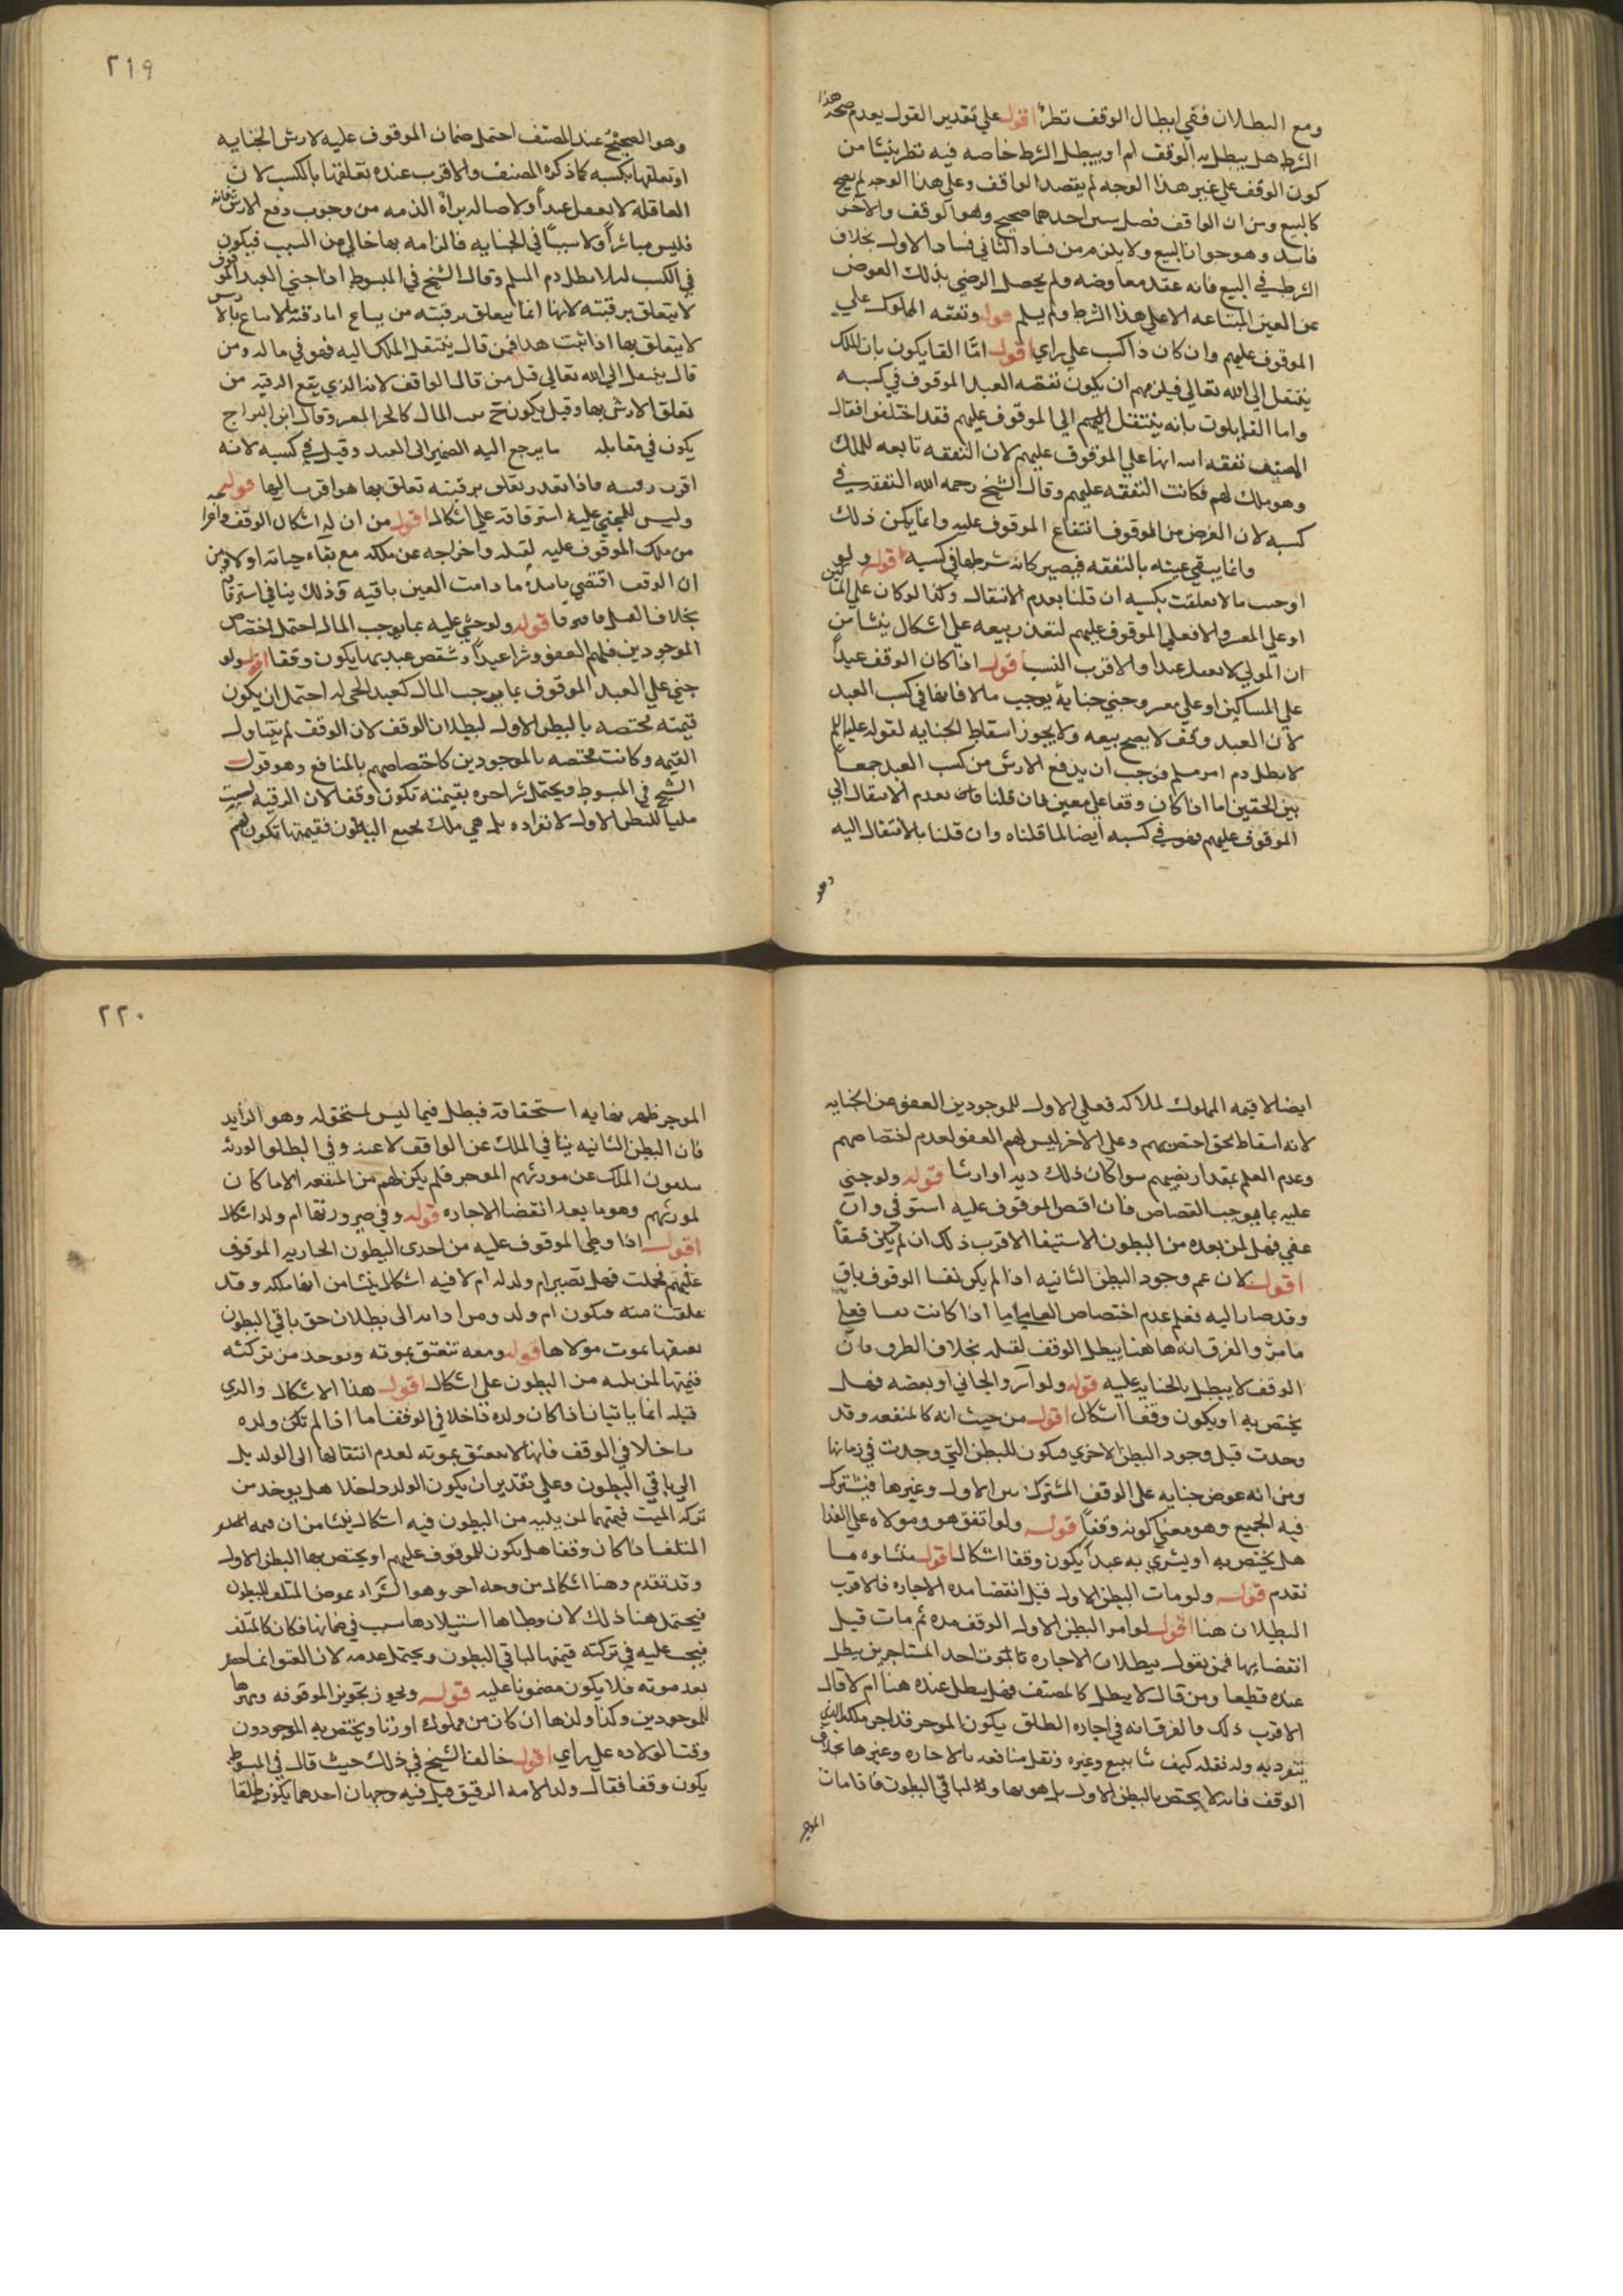 ومع البطلان ففي ابطال الوقف نظر اقول علي تقدير القول بعدم صحة هذا
الشرط هل يبطل به الوقف ام او يبطل الشرط خاصه فيه نظر ينشا من
كون الوقف علي غير هذا الوجه لم يقصد الواقف وعلي هذا الوجه لم يصح
كالبيع ومن ان الواقف فصل بين احدهما صحيح وهو الوقف والاخر
فاسد وهو جواز البيع ولا يلزم من فساد الثاني فساد الاول بخلاف
الشرط في البيع فانه عقد معاوضه ولم يحصل الرضي بذلك العوض
عن العين المبتاعه الا علي هذا الشرط ولم يسلم قوله ونفقه المملوك علي
الموقوف عليهم وان كان ذا كسب علي راي اقول امّا القايكون بان الملك
ينتقل الي الله تعالي فيلزمهم ان يكون نفقه العبد الموقوف في كسبه
واما القايلون بانه ينتقل اليهم الي الموقوف عليهم فقد اختلفوا فقال
المصنف نفقه انها علي الموقوف عليهم لان النفقه تابعه للملك
وهو ملك لهم فكانت النفقه عليهم وقال الشيخ رحمه الله النفقه في
كسبه لان الغرض من الموقوف انتفاع الموقوف عليه وانما يكن ذلك
وانما يبقي عينه بالنفقه فيصير كانه شرطها في كسبه اقول ولو
اوجب مالا تعلقت بكسبه ان قلنا بعدم الانتقال وكذا لو كان علي المساكين
او علي المعسر والا فعلي الموقوف عليهم لتعذر بيعه علي اشكال ينشا من
ان المولي لا يعقل عبدا والاقرب النسب اقول اذا كان الوقف عبداً
علي المساكين او علي معسر وجني جناية يوجب مالا فانها في كسب العبد
لان العبد وقف لا يصح بيعه ولا يجوز اسقاط الجنايه لقوله عليه السلم
لا يطل دم امر مسلم فوجب ان يدفع الارش من كسب العبد جمعاً
بين الحقين اما اذا كان وقفا علي معين فان قلنا بعدم الانتقال الي
الموقوف عليهم فهو في كسبه ايضا لما قلناه وان قلنا بالانتقال اليه
وهو
٢١٩
وهو الصحيح عند المصنف احتمل ضمان الموقوف عليه لارش الجنايه
او تعلقها بكسبه كما ذكره المصنف والاقرب عنده تعلقها بالكسب لان
العاقله لا يعقل عبداً ولاصاله براة الذمه من وجوب دفع الارش فانه
فليس مباشراً ولا سبباً في الجنايه فالزامه بها خالي من السبب فيكون
في الكسب ليلا يطل دم المسلم وقال الشيخ في المبسوط اذا جني العبد الموقوف
لا يتعلق برقبته لانها انما يتعلق برقبته من يباع اما رقبه لا تباع فالارش
لا يتعلق بها اذا ثبت هذا فمن قال ينتقل الملك اليه فهو في ماله ومن
قال ينتقل الي الله تعالي قيل من قال الواقف لانه الذي يقع الرقبه من
تعلق الارش بها وقيل يكون في بيت المال كالحر المعسر وقال ابن البراج
يكون في مقابله ما يرجع اليه الضمير الي العبد وقيل في كسبه لانه
اقرب رقبته فاذا تعذر تعلق برقبته تعلق بما هو اقرب اليها قوله
وليس للمجني عليه استرقاقه علي اشكال اقول من ان له اشكال الوقف واخراجه
من ملك الموقوف عليه لقتله واخراجه عن ملكه مع بقاء حياته اولا ومن
ان الوقف اقتضي تابيده ما دامت العين باقيه وذلك ينافي استرقاقه
بخلاف القتل قوله ولو جني عليه بما يوجب المال احتمل اختصاص
الموجودين فلهم العفو وشرا عبد او شقص عبد بها يكون وقفا اقول ولو
جني علي العبد الموقوف بما يوجب المال كعبد الحر له احتمل ان يكون
قيمته مختصه بالبطن الاول لبطلان الوقف لان الوقف لم يتناول
القيمه وكانت مختصه بالموجودين كاختصاصهم بالمنافع وهو قول
الشيخ في المبسوط ويحتمل شرا اخر بقيمته تكون وقفا لان الرقبه ليست
ملكا للبطن الاول لانفراده بل هي ملك لجميع البطون فقيمتها تكون لهم
ايضا لا قيمه المملوك لملاكه فعلي الاول للموجودين العفو عن الجنايه
لانه اسقاط لحق اختص بهم وعلي الاخر ليس لهم العفو لعدم اختصاصهم
وعدم العلم بمقدار نصيبهم سوا كان ذلك دية او ارشا قوله ولو جني
عليه بما يوجب القصاص فان اقتص الموقوف عليه استوفي وان
عفي فهل لمن بعده من البطون الاستيفا الاقرب ذلك ان لم يكن نفساً
اقول لان عم وجود البطن الثانيه اذا لم يكن نفسا الوقوف باق
وقد صار اليه فعلم عدم اختصاص العافي اما اذا كانت نفسا فعلي
ما مرّ والفرق انه هاهنا يبطل الوقف لقتله بخلاف الطرف فان
الوقف لا يبطل بالجنايه عليه قوله ولو اتر والجاني او بعضه فهل
يختص به او يكون وقفا اشكال اقول من حيث انه كالمنفعه وقد
وجدت قبل وجود البطن الاخري فيكون للبطن التي وجدت في زمانها
ومن انه عوض جنايه علي الوقف المشترك بين الاول وغيرها فيشترك
فيه الجميع وهو معني كونه وقفاً قوله ولو اتفق هو ومولاه علي الفدا
هل يختص به او يشتري به عبداً يكون وقفا اشكال اقول منشاوه ما
تقدم قوله ولو مات البطن الاول قبل انقضا مده الاجاره فالاقرب
البطلان هنا اقول لو اجر البطن الاول الوقف مده ثم مات قبل
انقضايها فمن يقول ببطلان الاجاره بالموت احد المستاجرين يبطل
عنده قطعا ومن قال لا يبطل كالمصنف فهل يبطل عنده هنا ام لا قال
الاقرب ذلك والفرق انه في اجاره الطلق يكون الموجر قد اجر ملكه الذي
يتفرد به وله نقله كيف شا ببيع وغيره ونقل منافعه بالاجاره وغيرها بخلاف
الوقف فانه لا يختص بالبطن الاول بل هو لها ولباقي البطون فاذا مات
الموجر
٢٢٠
الموجر ظهر نهايه استحقاقه فبطل فيما ليس يستحق له وهو الزايد
فان البطن الثانيه يتلقي الملك عن الواقف لا عنه وفي البطلو الورثه
يتلقون الملك عن مورثهم الموجر فلم يكن لهم من المنفعه الا ما كان
لمورثهم وهو ما بعد انقضا الاجاره قوله وفي صيرورتها ام ولد اشكال
اقول اذا وطي الموقوف عليه من احدي البطون الجاريه الموقوف
عليهم فحملت فهل تصير ام ولد له ام لا فيه اشكال ينشا من انها ملكه وقد
علقت منه فيكون ام ولد ومن اداه الي بطلان حق باقي البطون
بعتقها بموت مولاها قوله ومعه تنعتق بموته وتوخذ من تركته
قيمتها لمن يليه من البطون علي اشكال اقول هذا الاشكال والذي
قبله انما ياتيان اذا كان ولده داخلا في الوقف اما اذا لم تكن ولده
داخلا في الوقف فانها لا تنعتق بموته لعدم انتقالها الي الولد بل
الي باقي البطون وعلي تقدير ان يكون الولد داخلا هل يوخذ من
تركه الميت قيمتها لمن يليه من البطون فيه اشكال ينشا من ان قيمه العبد
المتلف اذا كان وقفا هل يكون للموقوف عليهم او يختص بها البطن الاول
وقد تقدم وهنا اشكال من وجه اخر وهو الشراء عوض المتلف للبطون
فيحتمل هنا ذلك لان وطاها استيلادها سبب في ضمانها فكان كالمتلف
فيجب عليه في تركته قيمتها لباقي البطون ويحتمل عدمه لان العتق انما حصل
بعد موته فلا يكون مضمونا عليه قوله ويجوز تجويز الموقوفه ومهرها
للموجودين وكذا ولدها ان كان من مملوك او زنا ويختص به الموجودون
وقت الولاده علي راي اقول خالف الشيخ في ذلك حيث قال في المبسوط
يكون وقفا فقال ولد الامه الرقيق قيل فيه وجهان احدهما يكون طلقا